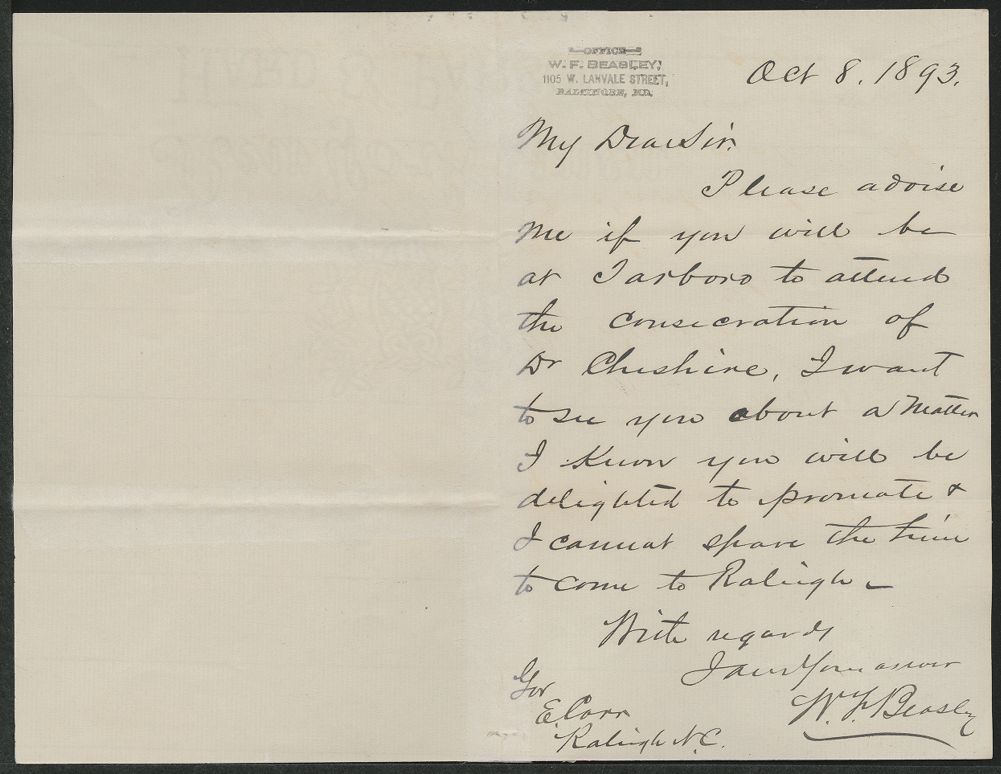 OFFICE
W. F. BEASLEY,
1105 W. LANVALE STREET,
BALTIMORE, MD.
Oct 8. 1893.
My Dear Sir.
Please advise
me if you will be
at Tarboro to attend
the consecration of
Dr Cheshire, I want
to see you about a matter
I know you will be
delighted to promote &
I cannot spare the time
to come to Raleigh –
With regards
I am Yours
W. F. Beasley
Gov
E. Carr
Raleigh N.C.